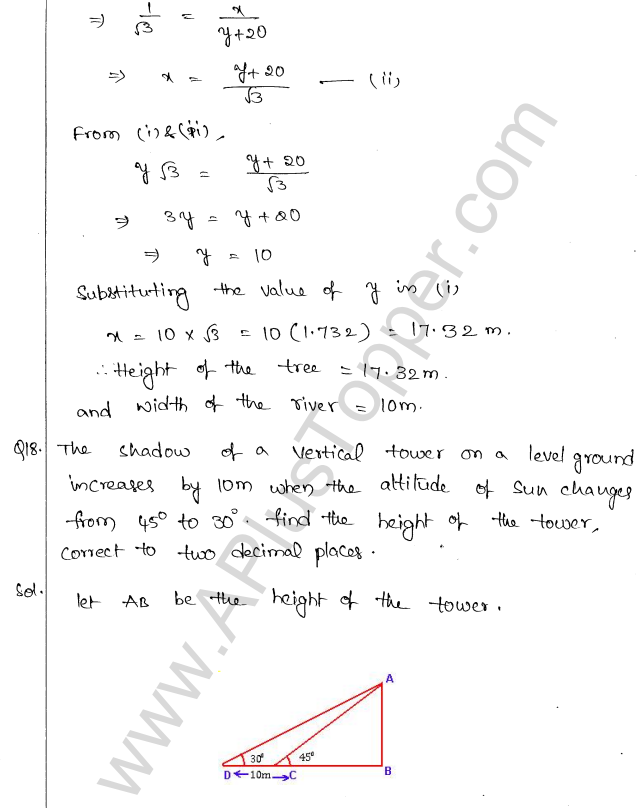 ⇒ 1/√3 = x/y+20
⇒ x = y+20/√3 — (ii)
From (i) & (ii),
y√3 = y+20/√3
⇒ 3y = y+20
⇒ y = 10
Substituting the value of y in (i)
x = 10 × √3 = 10 (1.732) = 17.32 m.
∴ Height of the tree = 17.32m.
and width of the river = 10m.
Q18. The shadow of a vertical tower on a level ground
increases by 10m when the altitude of sun changes
from 45° to 30°. find the height of the tower,
correct to two decimal places.
Sol. let AB be the height of the tower.
A
30° 45°
D ←10m→ C B
www.APlusTopper.com